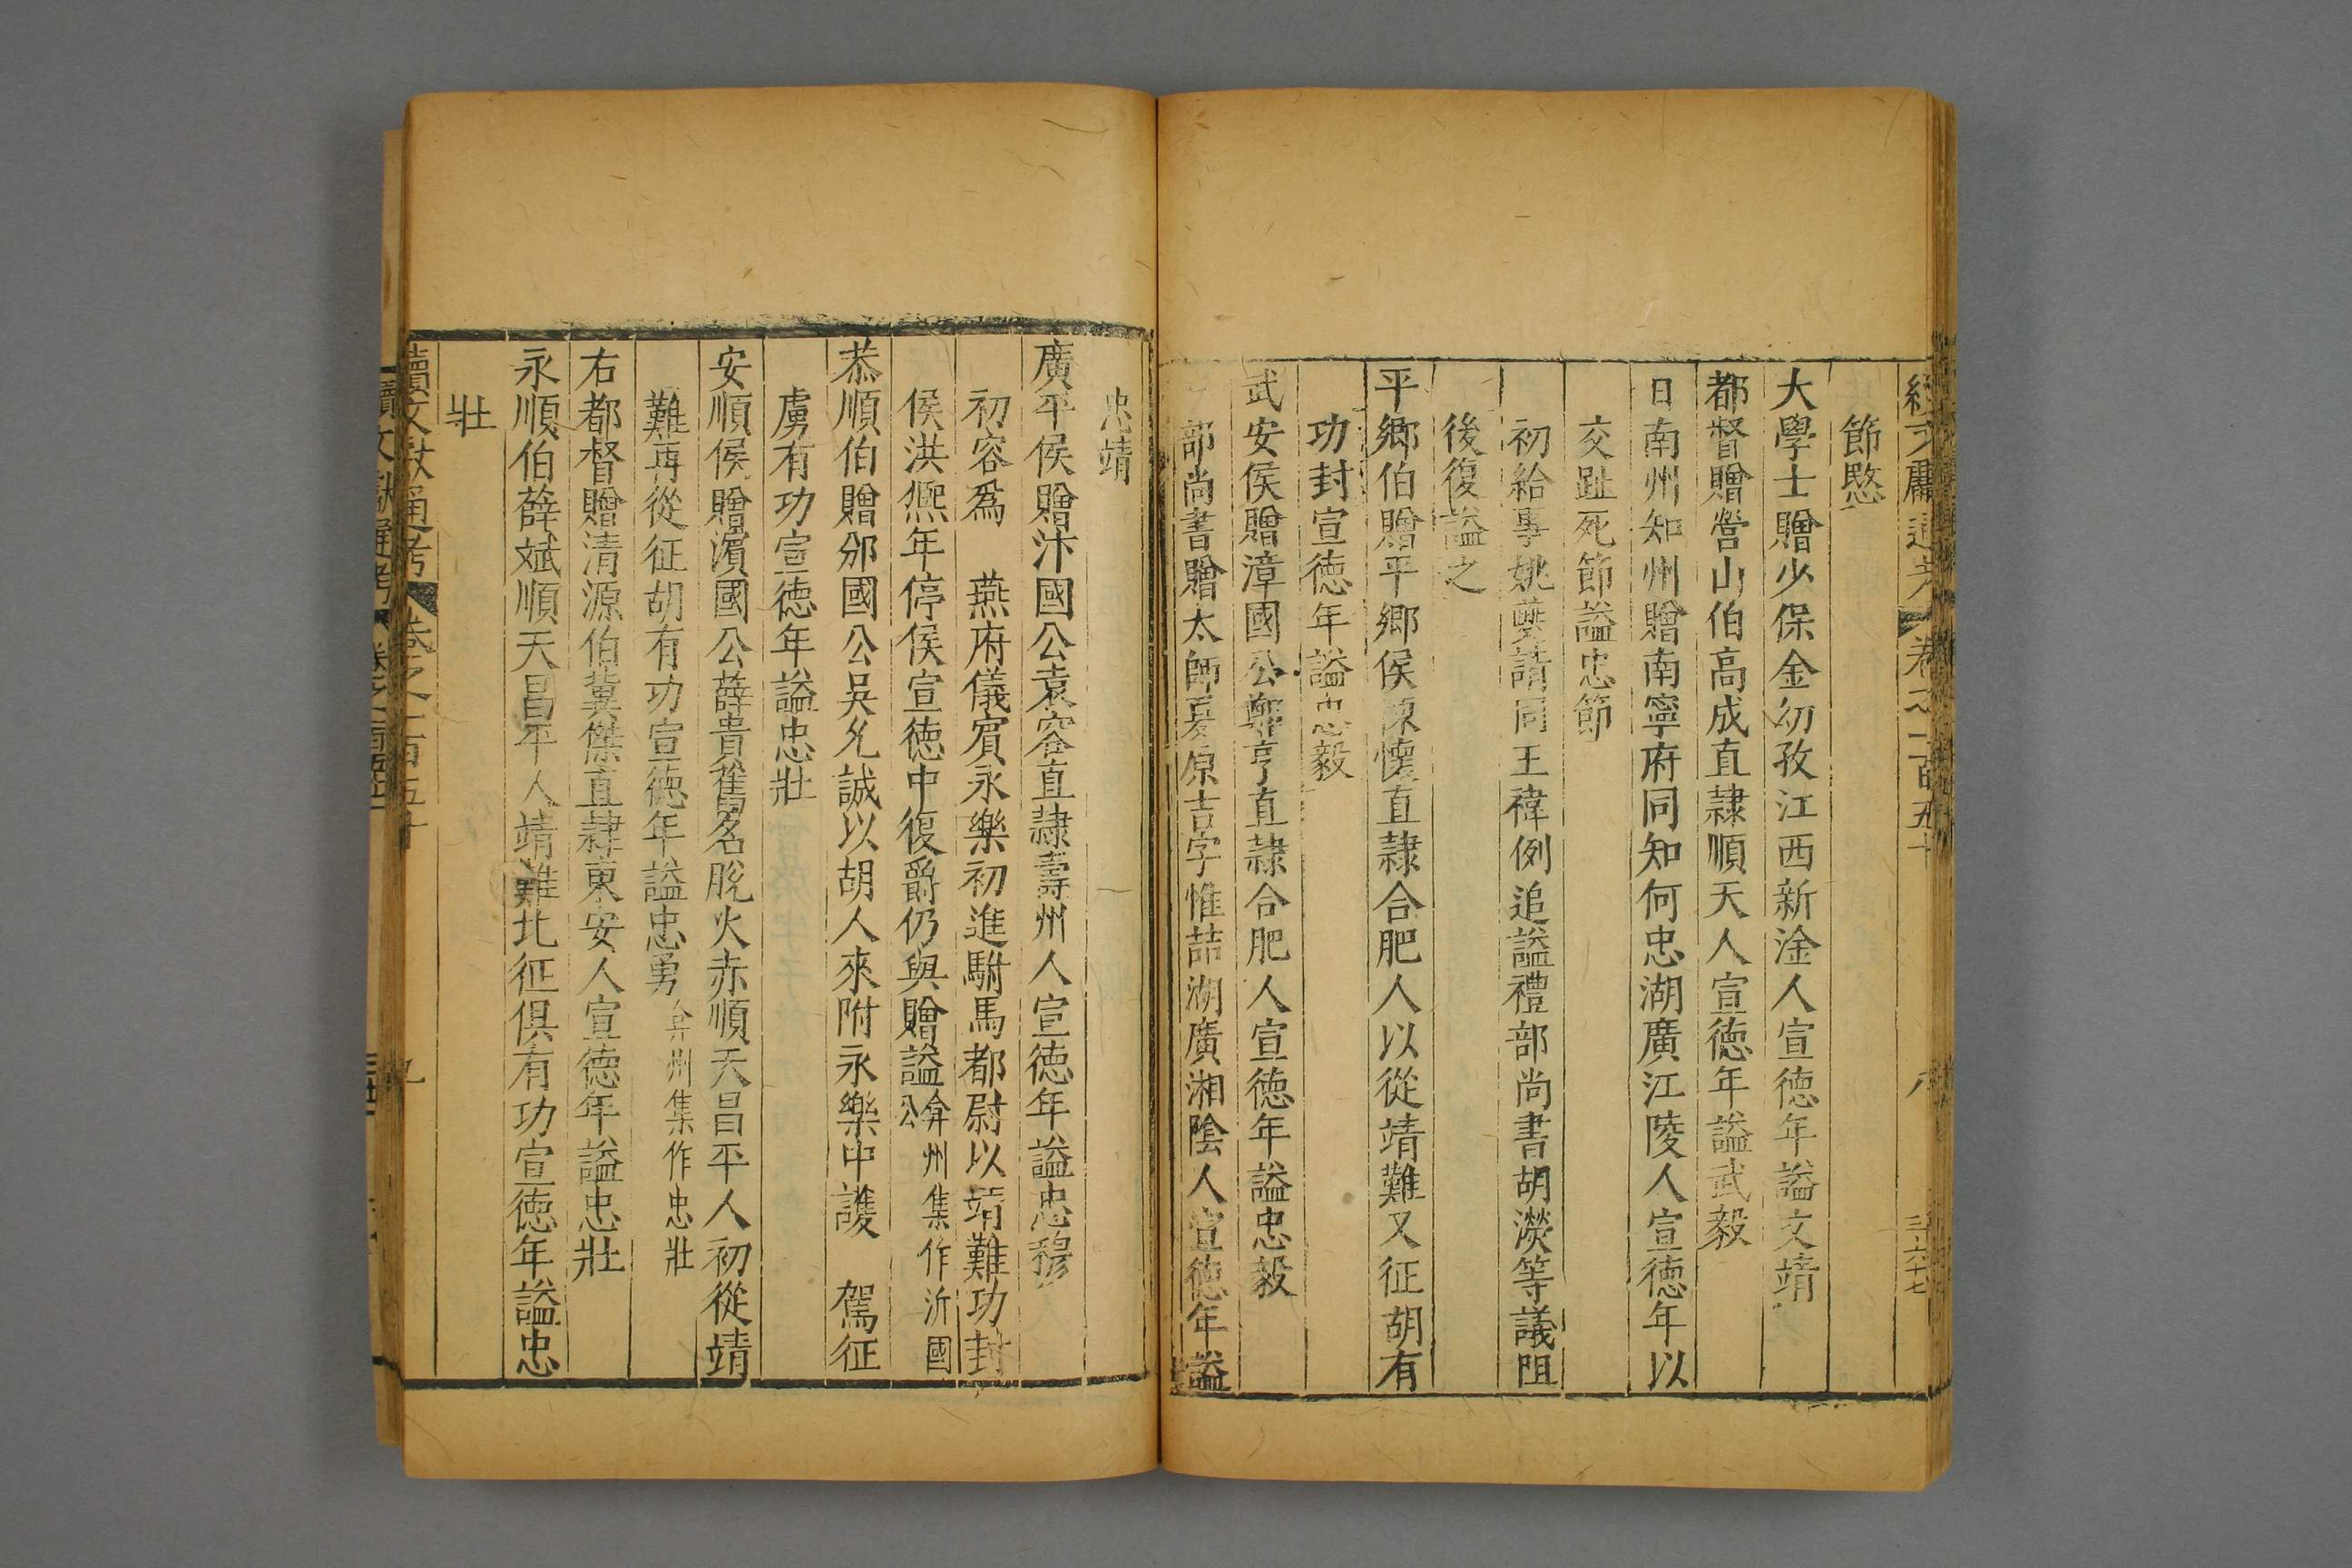 節愍
大學士贈少保金幼孜江西新淦人宣德年謚文靖
都督贈營山伯高成直隷順天人宣德年謚武毅
日南州知州贈南寧府同知何忠湖廣江陵人宣德年以
交趾死節謚忠節
初給事姚夔請同王禕例追謚禮部尚書胡濙等議阻
後復謚之
平鄉伯贈平鄉侯陳懷直隷合肥人以從靖難又征胡有
功封宣德年謚忠毅
武安侯贈漳國公鄭亨直隷合肥人宣德年謚忠毅
部尚書贈太師夏原吉字惟喆湖廣湘陰人宣德年謚
忠靖
廣平侯贈汴國公袁容直隷壽州人宣德年謚忠穆
初容爲 燕府儀賓永樂初進駙馬都尉以靖難功封
侯洪熈年停侯宣德中復爵仍與贈謚弇州集作沂國公
恭順伯贈邠國公吳允誠以胡人來附永樂中護 駕征
虜有功宣德年謚忠壯
安順侯贈濵國公薛貴舊名脫火赤順天昌平人初從靖
難再從征胡有功宣德年謚忠勇弇州集作忠壯
右都督贈清源伯冀傑直隷東安人宣德年謚忠壯
永順伯薛斌順天昌平人靖難北征俱有功宣德年謚忠
壯
續文獻通考 卷之二百五十 九